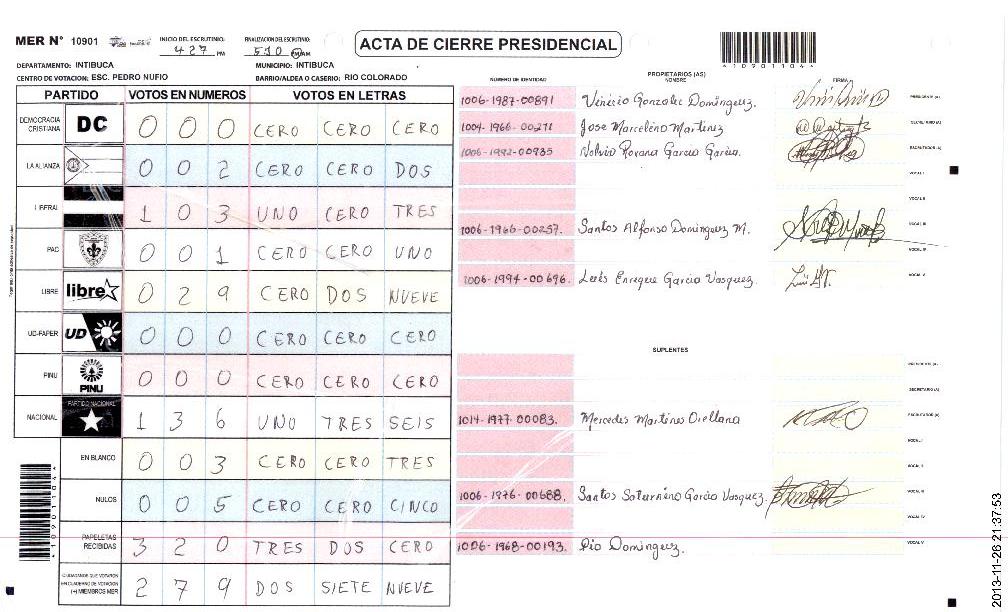 MER Nº 10901
INICIO DEL ESCRUTINIO: 427 PM
FINALIZACION DEL ESCRUTINIO: 510 PM/AM
ACTA DE CIERRE PRESIDENCIAL
*10901104*
DEPARTAMENTO: INTIBUCA
MUNICIPIO: INTIBUCA
CENTRO DE VOTACION: ESC. PEDRO NUFIO
BARRIO/ALDEA O CASERIO: RIO COLORADO
PARTIDO VOTOS EN NUMEROS VOTOS EN LETRAS
DEMOCRACIA CRISTIANA DC 0 0 0 CERO CERO CERO
LA ALIANZA 0 0 2 CERO CERO DOS
LIBERAL 1 0 3 UNO CERO TRES
PAC 0 0 1 CERO CERO UNO
LIBRE libre 0 2 9 CERO DOS NUEVE
UD-FAPER UD 0 0 0 CERO CERO CERO
PINU PINU 0 0 0 CERO CERO CERO
NACIONAL PARTIDO NACIONAL 1 3 6 UNO TRES SEIS
EN BLANCO 0 0 3 CERO CERO TRES
NULOS 0 0 5 CERO CERO CINCO
PAPELETAS RECIBIDAS 3 2 0 TRES DOS CERO
CIUDADANOS QUE VOTARON EN CUADERNO DE VOTACION (+) MIEMBROS MER 2 7 9 DOS SIETE NUEVE
*10901104*
PROPIETARIOS (AS)
NUMERO DE IDENTIDAD NOMBRE FIRMA
1006-1987-00891 Vinicio Gonzalez Dominguez. PRESIDENTE (A)
1004-1966-00271 Jose Marcelino Martinez SECRETARIO (A)
1006-1992-00935 Nolvia Roxana Garcia Garcia. ESCRUTADOR (A)
VOCAL I
VOCAL II
1006-1966-00257. Santos Alfonso Dominguez M. VOCAL III
VOCAL IV
1006-1994-00696. Luis Enrique Garcia Vasquez. VOCAL V
SUPLENTES
PRESIDENTE (A)
SECRETARIO (A)
1014-1977-00083. Mercedes Martines Orellana ESCRUTADOR (A)
VOCAL I
VOCAL II
1006-1976-00688. Santos Saturnino Garcia Vasquez. VOCAL III
VOCAL IV
1006-1968-00193. Pio Dominguez. VOCAL V
2013-11-26 21:37:53